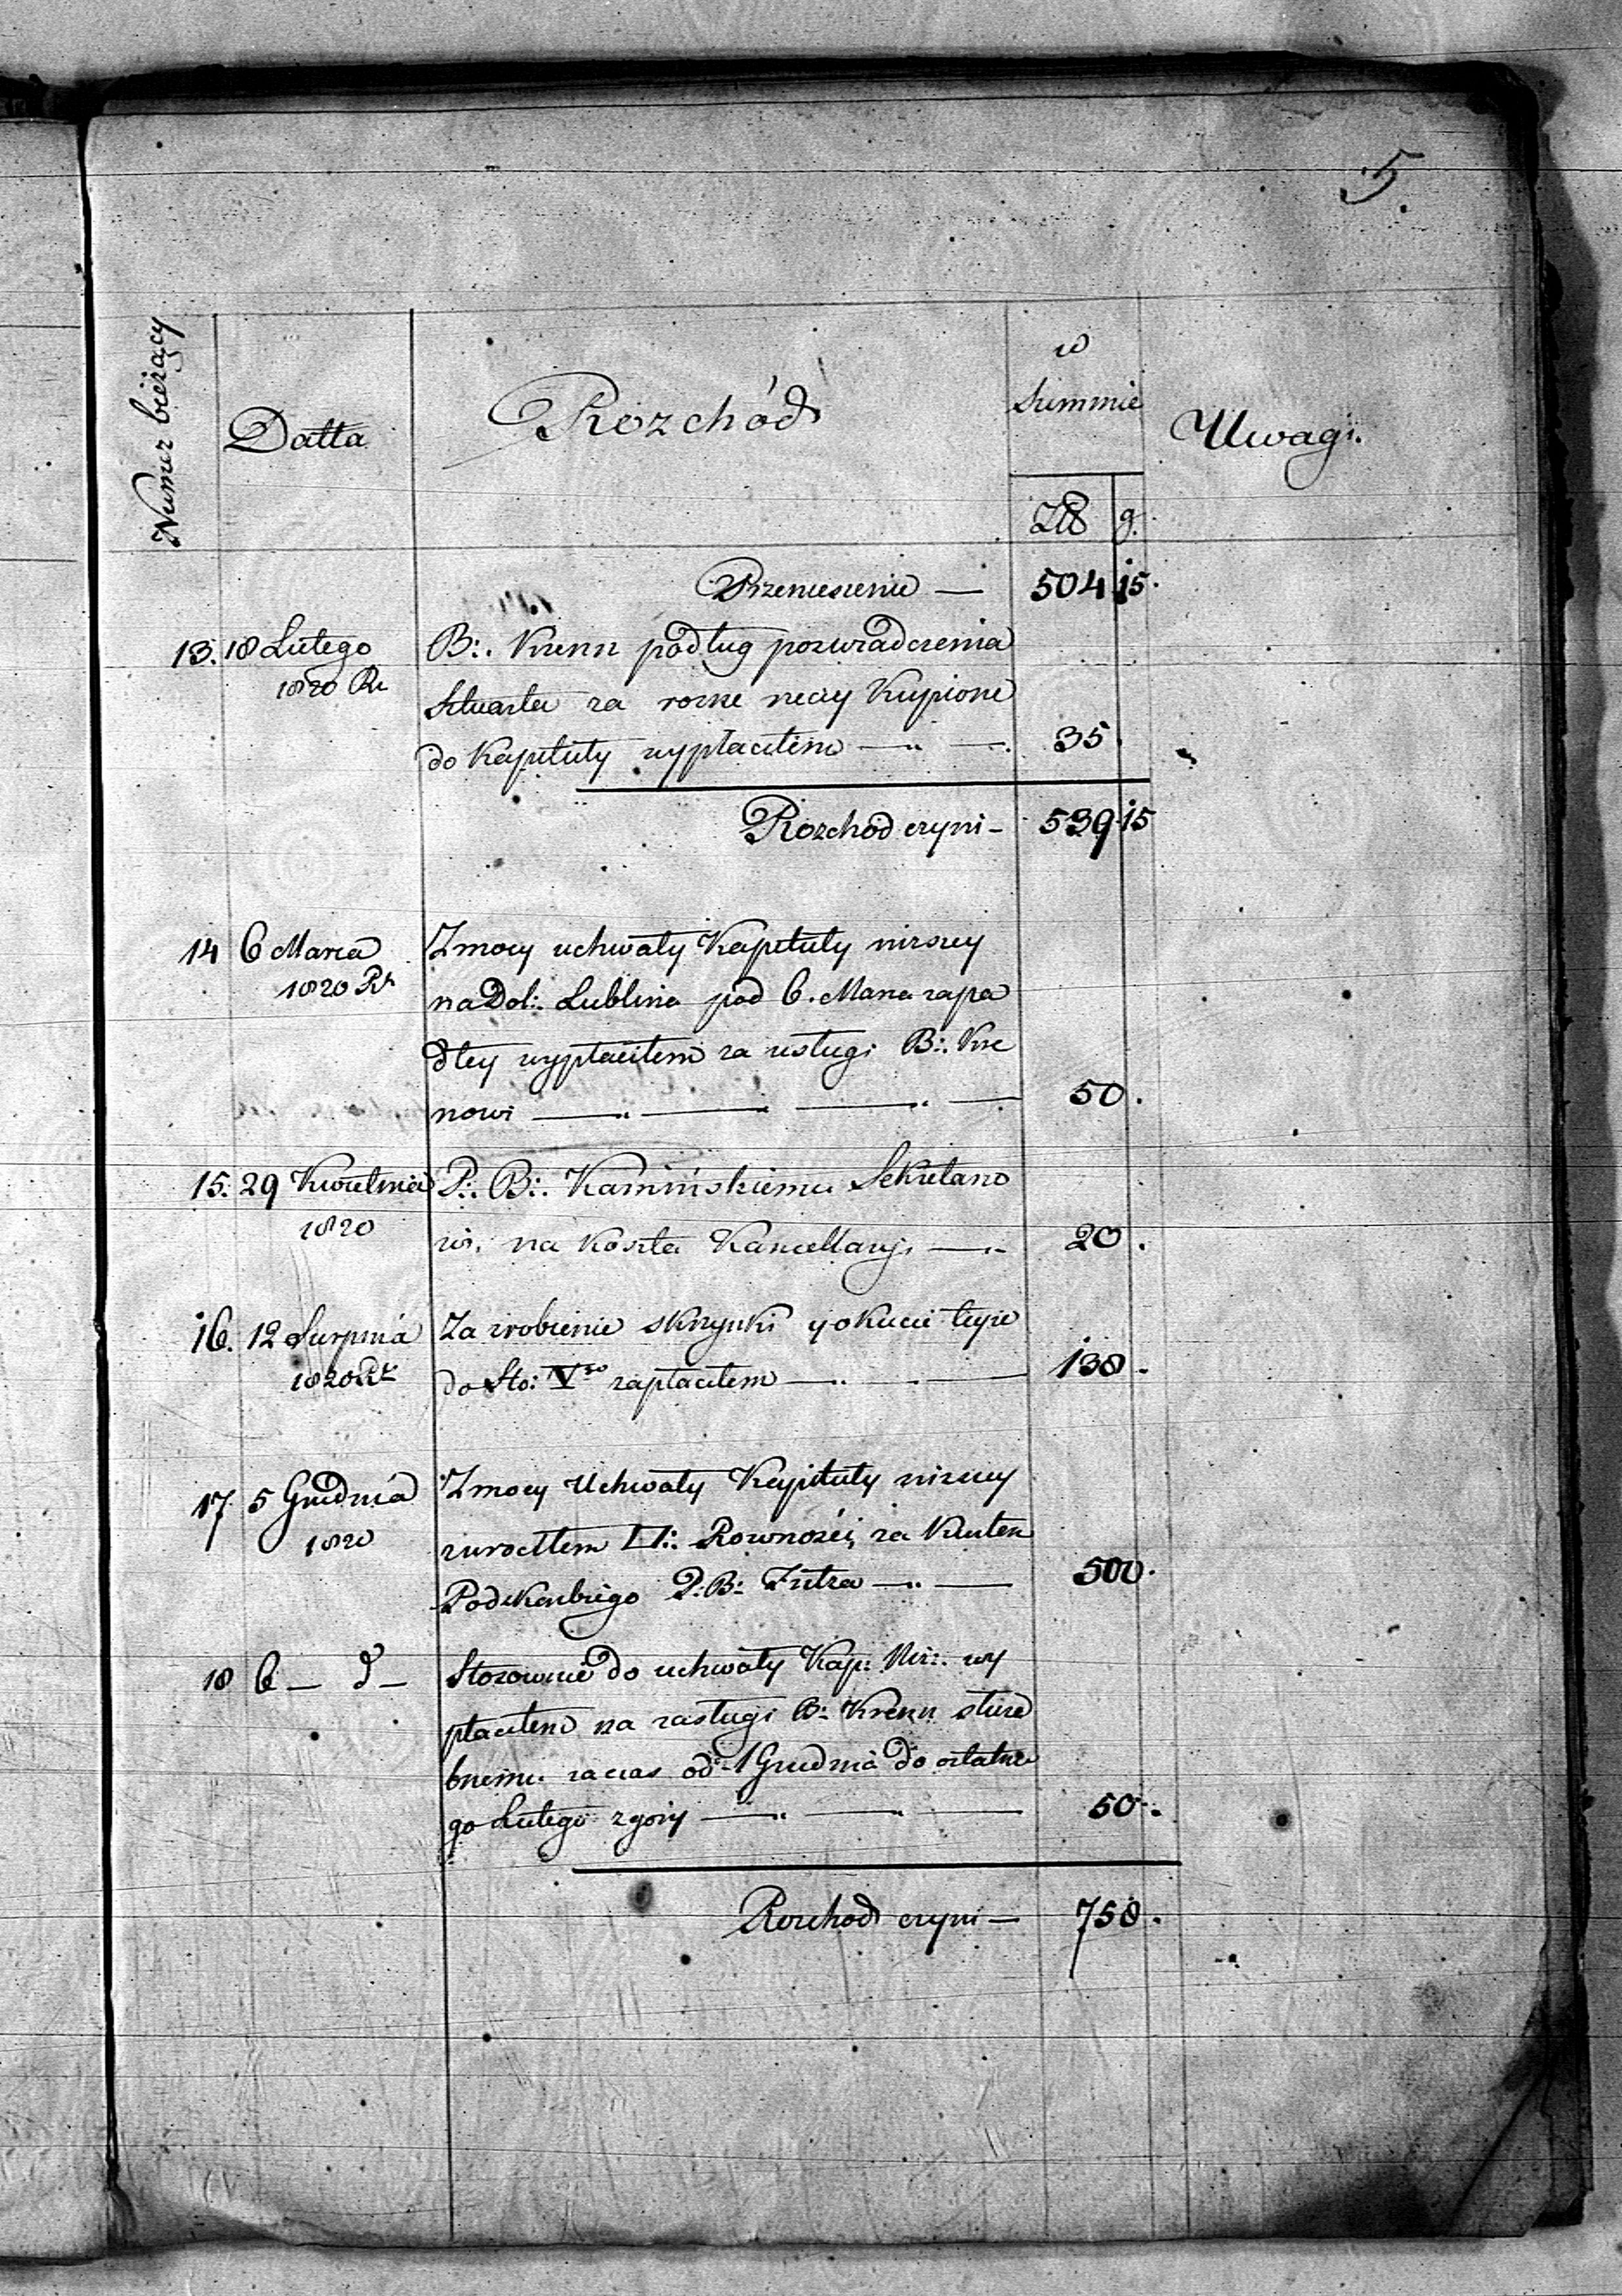 5.
Numer bieżący
Datta
Rozchód
w
Summie
Uwagi.
Zł g.
Przeniesienie — 504 15.
13. 18 Lutego B∴ Krenn podług poswiadczenia
1820 Ru Stuarta za rozne rzeczy Kupione
do Kapituły wypłaciłem — 35.
Rozchod czyni — 539 15
14 6 Marca Zmocy uchwały Kapituły nizszey
1820 Rt na Dol: Lublina pod 6. Marca zapa
dłey wypłaciłem za usługi B∴ Kre
nowi — 50.
15. 29 Kwietnia P∴ B∴ Kamińskiemu Sekretarzo
1820 wi. na koszta Kancellaryi — 20.
16. 12 Sierpnia Za zrobienie skrzynki y okucie teyże
1820 Rt do Sto: V go zapłaciłem — 138.
17. 5 Grudnia Zmocy Uchwały Kapituły nizszey
1820 zwrociłem □∴ Rowności, za Kwitem
Podskarbiego P: B: Zutra — 500.
18 6 — d — Stosownie do uchwały Kap: Niz:. wy
płaciłem na zasługi B: Krenn służe
bnemu za czas od 1 Grudnia do ostatnie
go Lutego zgóry — 50.
Rozchod czyni — 758.